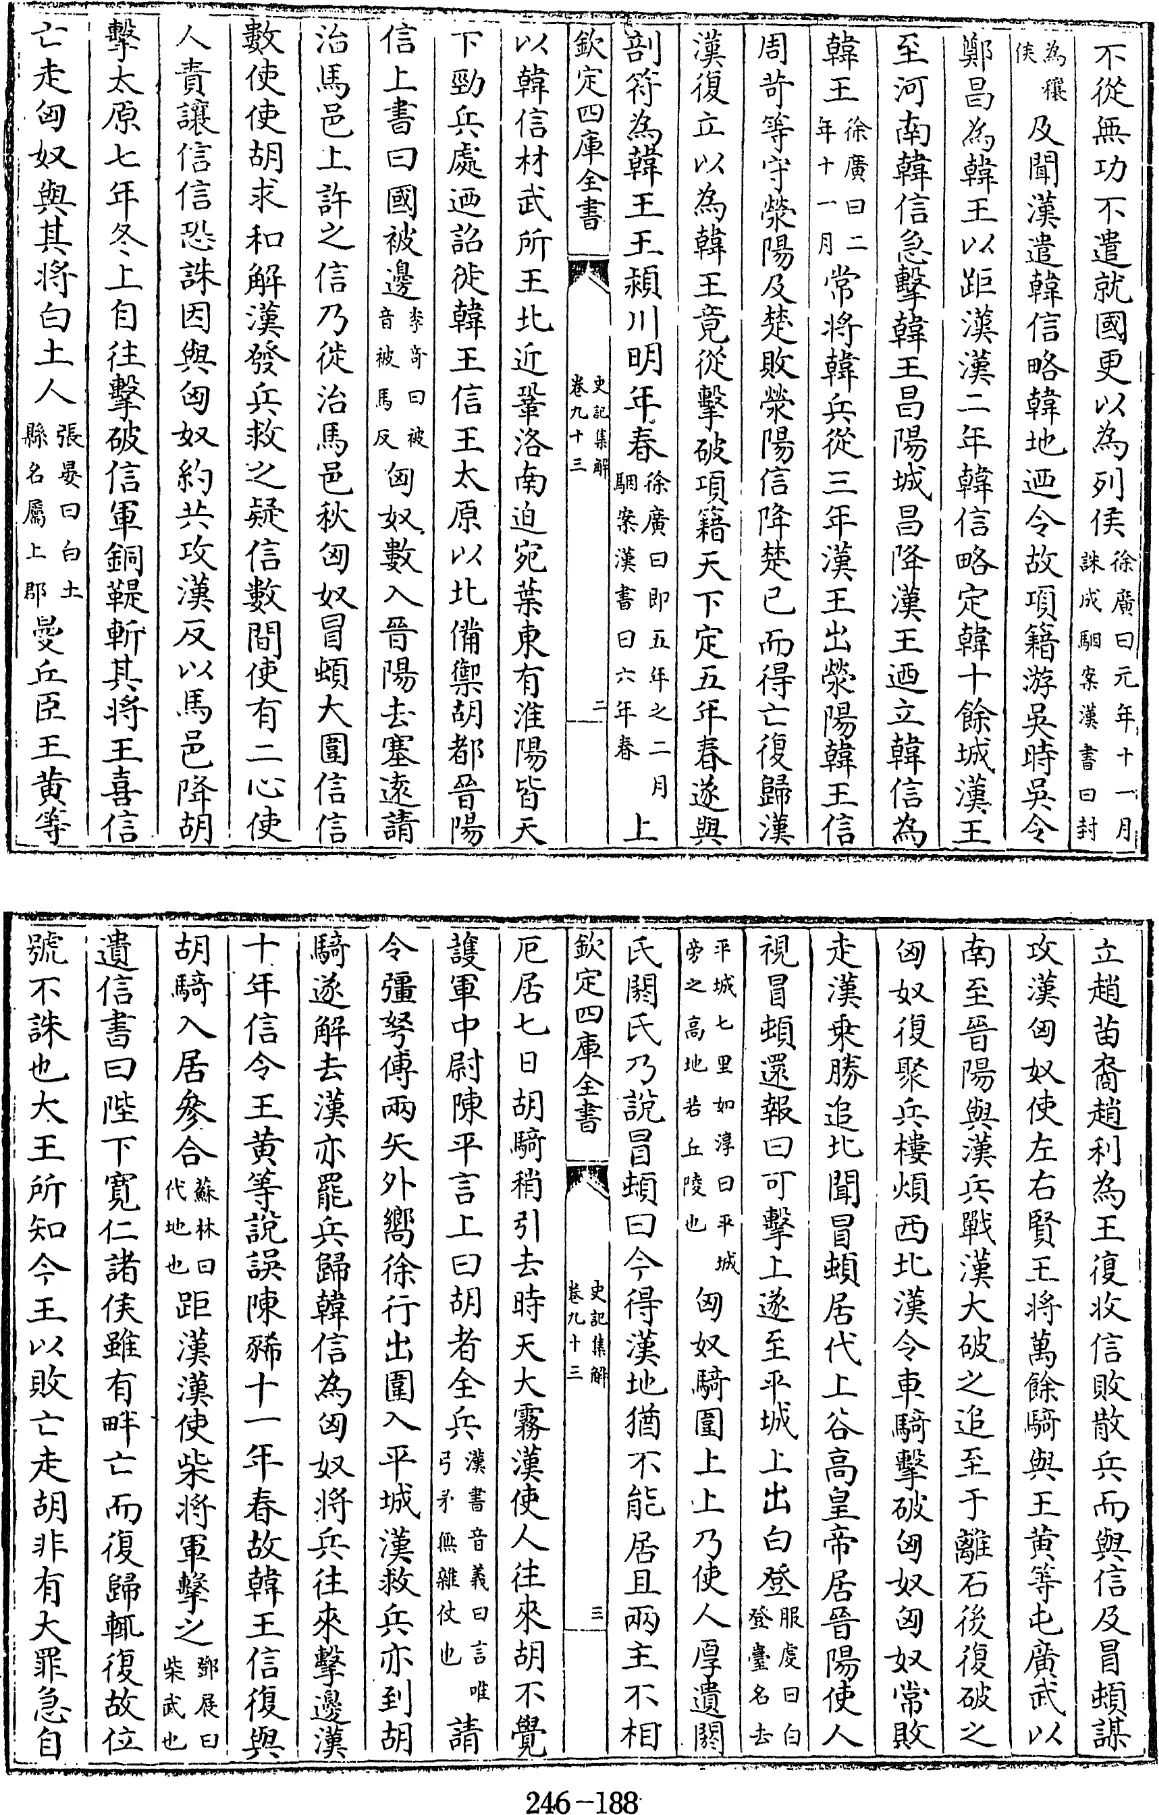 不從無功不遣就國更以為列侯徐廣曰元年十一月誅成駰案漢書曰封
為穰侯及聞漢遣韓信略韓地迺令故項籍游吳時吳令
鄭昌為韓王以距漢漢二年韓信略定韓十餘城漢王
至河南韓信急擊韓王昌陽城昌降漢王迺立韓信為
韓王徐廣曰二年十一月常將韓兵從三年漢王出滎陽韓王信
周苛等守滎陽及楚敗滎陽信降楚已而得亡復歸漢
漢復立以為韓王竟從擊破項籍天下定五年春遂與
剖符為韓王王潁川明年春徐廣曰即五年之二月駰案漢書曰六年春上
欽定四庫全書 史記集解卷九十三 二
以韓信材武所王北近鞏洛南迫宛葉東有淮陽皆天
下勁兵處迺詔徙韓王信王太原以北備禦胡都晉陽
信上書曰國被邊李奇曰被音被馬反匈奴數入晉陽去塞遠請
治馬邑上許之信乃徙治馬邑秋匈奴冒頓大圍信信
數使使胡求和解漢發兵救之疑信數間使有二心使
人責讓信信恐誅因與匈奴約共攻漢反以馬邑降胡
擊太原七年冬上自往擊破信軍銅鞮斬其將王喜信
亡走匈奴與其將白土人張晏曰白土縣名屬上郡曼丘臣王黄等
立趙苗裔趙利為王復收信敗散兵而與信及冒頓謀
攻漢匈奴使左右賢王將萬餘騎與王黄等屯廣武以
南至晉陽與漢兵戰漢大破之追至于離石後復破之
匈奴復聚兵樓煩西北漢令車騎擊破匈奴匈奴常敗
走漢乘勝追北聞冒頓居代上谷高皇帝居晉陽使人
視冒頓還報曰可擊上遂至平城上出白登服虔曰白登臺名去
平城七里如淳曰平城旁之高地若丘陵也匈奴騎圍上上乃使人厚遺閼
氏閼氏乃說冒頓曰今得漢地猶不能居且兩主不相
欽定四庫全書 史記集解卷九十三 三
厄居七日胡騎稍引去時天大霧漢使人往來胡不覺
護軍中尉陳平言上曰胡者全兵漢書音義曰言唯弓矛無雜仗也請
令彊弩傅兩矢外嚮徐行出圍入平城漢救兵亦到胡
騎遂解去漢亦罷兵歸韓信為匈奴將兵往來擊邊漢
十年信令王黄等說誤陳豨十一年春故韓王信復與
胡騎入居參合蘇林曰代地也距漢漢使柴將軍擊之鄧展曰柴武也
遺信書曰陛下寛仁諸侯雖有畔亡而復歸輒復故位
號不誅也大王所知今王以敗亡走胡非有大罪急自
246-188